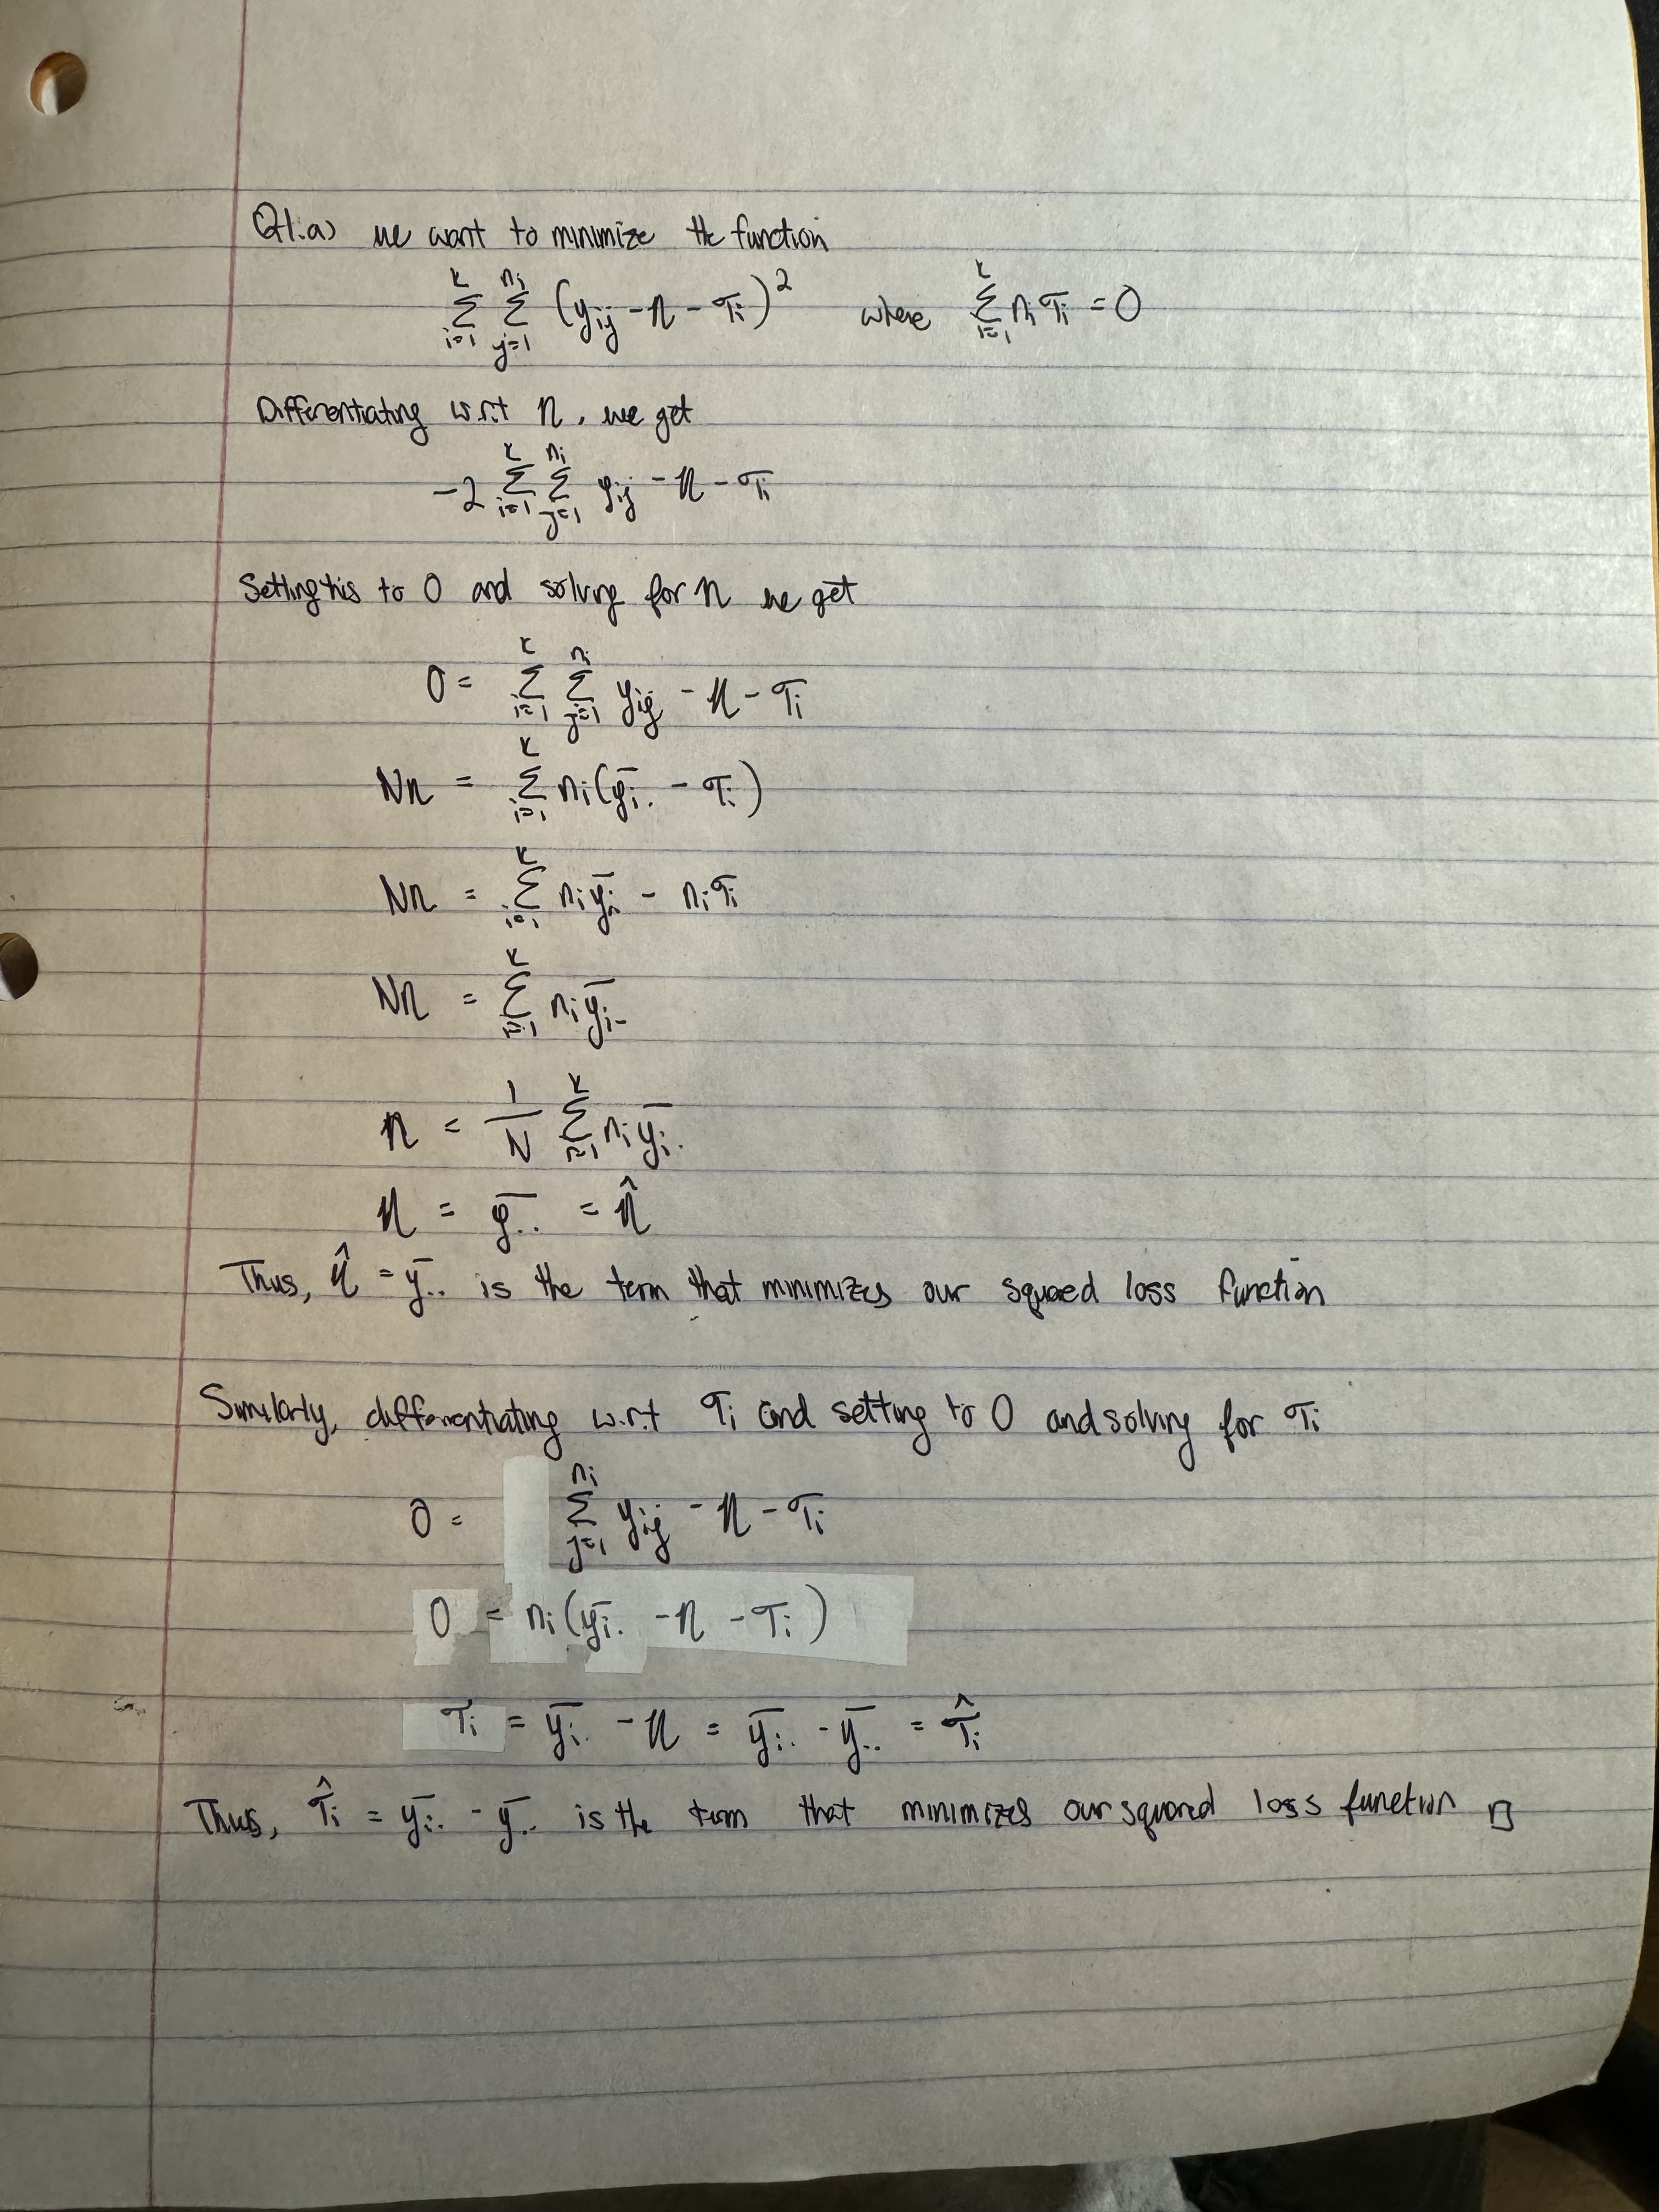 Q1.a) we want to minimize the function
∑_{i=1}^{k} ∑_{j=1}^{n_i} (y_{ij} - η - τ_i)^2 where ∑_{i=1}^{k} n_i τ_i = 0
Differentiating w.r.t η, we get
-2 ∑_{i=1}^{k} ∑_{j=1}^{n_i} y_{ij} - η - τ_i
Setting this to 0 and solving for η we get
0 = ∑_{i=1}^{k} ∑_{j=1}^{n_i} y_{ij} - η - τ_i
Nη = ∑_{i=1}^{k} n_i(ȳ_{i.} - τ_i)
Nη = ∑_{i=1}^{k} n_i ȳ_{i.} - n_i τ_i
Nη = ∑_{i=1}^{k} n_i ȳ_{i.}
η = 1/N ∑_{i=1}^{k} n_i ȳ_{i.}
η = ȳ_{..} = η̂
Thus, η̂ = ȳ_{..} is the term that minimizes our squared loss function
Similarly, differentiating w.r.t τ_i and setting to 0 and solving for τ_i
0 = ∑_{j=1}^{n_i} y_{ij} - η - τ_i
0 = n_i(ȳ_{i.} - η - τ_i)
τ_i = ȳ_{i.} - η = ȳ_{i.} - ȳ_{..} = τ̂_i
Thus, τ̂_i = ȳ_{i.} - ȳ_{..} is the term that minimizes our squared loss function □